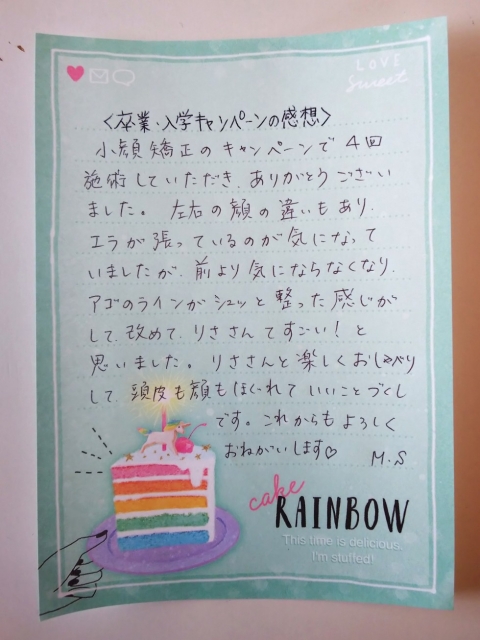 LOVE
Sweet
〈卒業・入学キャンペーンの感想〉
小顔矯正のキャンペーンで4回
施術していただき、ありがとうござい
ました。左右の顔の違いもあり、
エラが張っているのが気になって
いましたが、前より気にならなくなり、
アゴのラインがシュッと整った感じが
して、改めて、りささんてすごい！と
思いました。りささんと楽しくおしゃべり
して、頭皮も顔もほぐれていいことづくし
です。これからもよろしく
おねがいします♡ M.S
cake
RAINBOW
This time is delicious.
I'm stuffed!